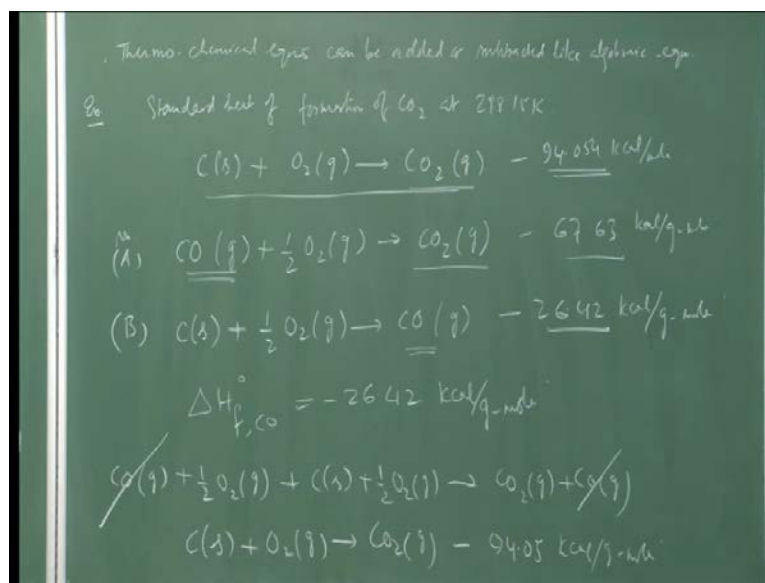 Thermo-chemical eqns can be added or subtracted like algebraic eqn.
Ex Standard heat of formation of CO₂ at 298 15K
C(s) + O₂(g) → CO₂(g) - 94.054 kcal/mole
(A) CO(g) + ½ O₂(g) → CO₂(g) - 67 63 kcal/g-mole
(B) C(s) + ½ O₂(g) → CO(g) - 26 42 kcal/g-mole
ΔH°f,CO = -26 42 kcal/g-mole
CO(g) + ½ O₂(g) + C(s) + ½ O₂(g) → CO₂(g) + CO(g)
C(s) + O₂(g) → CO₂(g) - 94.05 kcal/g-mole